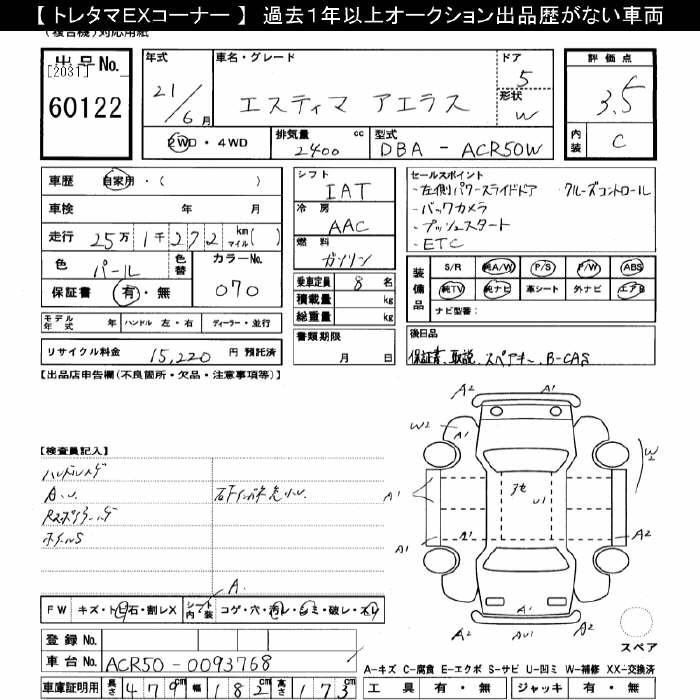 【 トレタマEXコーナー 】 過去1年以上オークション出品歴がない車両
(複合機)対応用紙
出品No.
[2031]
60122
年式
21/6月
車名・グレード
エスティマ アエラス
ドア
5
形状
W
評価点
3.5
内装
C
2WD・4WD
排気量 cc
2400
型式
DBA - ACR50W
車歴 自家用・( )
車検 年 月
走行 25万1千272 km マイル( )
色 パール
色替
カラーNo.
070
保証書 有・無
シフト
IAT
冷房
AAC
燃料
ガソリン
乗車定員 8 名
積載量 kg
総重量 kg
セールスポイント
・左側パワースライドドア クルーズコントロール
・バックカメラ
・プッシュスタート
・ETC
装備品
S/R 純A/W P/S P/W ABS
純TV 純ナビ 革シート 外ナビ エアB
ナビ型番:
モデル年式 年 ハンドル 左・右 ディーラー・並行
リサイクル料金 15,220 円 預託済
書類期限
月 日
後日品
保証書、取説、スペアキー、B-CAS
【出品店申告欄(不良箇所・欠品・注意事項等)】
【検査員記入】
ハンドルスレ
A.U.
ホイールS
A2 A1 A2
W2 A1 W2
A1 U1
A1 A1 A2
A2 AU1 A2
A.
FW キズ・ト・石・割レX シート内装 コゲ・穴・汚レ・シミ・破レ・スレ
登録 No.
車台 No. ACR50-0093768
車庫証明用 長さ 479cm 幅 182cm 高さ 173cm
スペア
A―キズ C―腐食 E―エクボ S―サビ U―凹ミ W―補修 XX―交換済
工具 有・無 ジャッキ 有・無